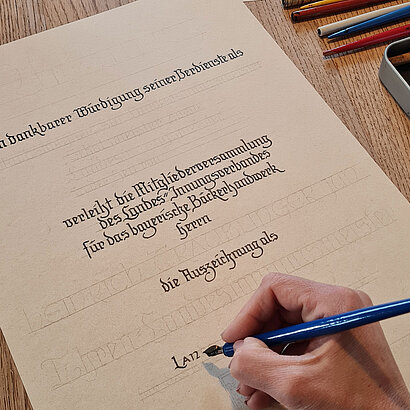 n dankbarer Würdigung seiner Verdienste als
verleiht die Mitgliederversammlung
des Landes-Innungsverbandes
für das bayerische Bäckerhandwerk
Herrn
die Auszeichnung als
Lan